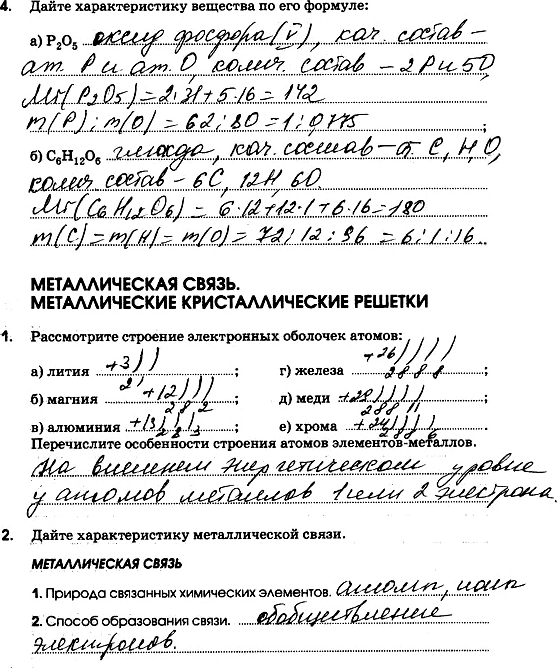 4. Дайте характеристику вещества по его формуле:
а) P₂O₅ оксид фосфора (V), кач. состав –
ат. P и ат. O, колич. состав – 2P и 5O,
Mr(P₂O₅) = 2·31 + 5·16 = 142
m(P) : m(O) = 62 : 80 = 1 : 0,775 ;
б) C₆H₁₂O₆ глюкоза, кач. состав – ат. C, H, O,
колич. состав – 6C, 12H, 6O.
Mr(C₆H₁₂O₆) = 6·12 + 12·1 + 6·16 = 180
m(C) = m(H) = m(O) = 72 : 12 : 96 = 6 : 1 : 16.
МЕТАЛЛИЧЕСКАЯ СВЯЗЬ.
МЕТАЛЛИЧЕСКИЕ КРИСТАЛЛИЧЕСКИЕ РЕШЕТКИ
1. Рассмотрите строение электронных оболочек атомов:
а) лития +3 ) ) 2 1 ; г) железа +26 ) ) ) ) 2 8 8 8 ;
б) магния +12 ) ) ) 2 8 2 ; д) меди +29 ) ) ) ) 2 8 8 11 ;
в) алюминия +13 ) ) ) 2 8 3 ; е) хрома +24 ) ) ) ) 2 8 8 6 .
Перечислите особенности строения атомов элементов-металлов.
На внешнем энергетическом уровне
у атомов металлов 1 или 2 электрона.
2. Дайте характеристику металлической связи.
МЕТАЛЛИЧЕСКАЯ СВЯЗЬ
1. Природа связанных химических элементов. атомы, ионы
2. Способ образования связи. обобществление
электронов.